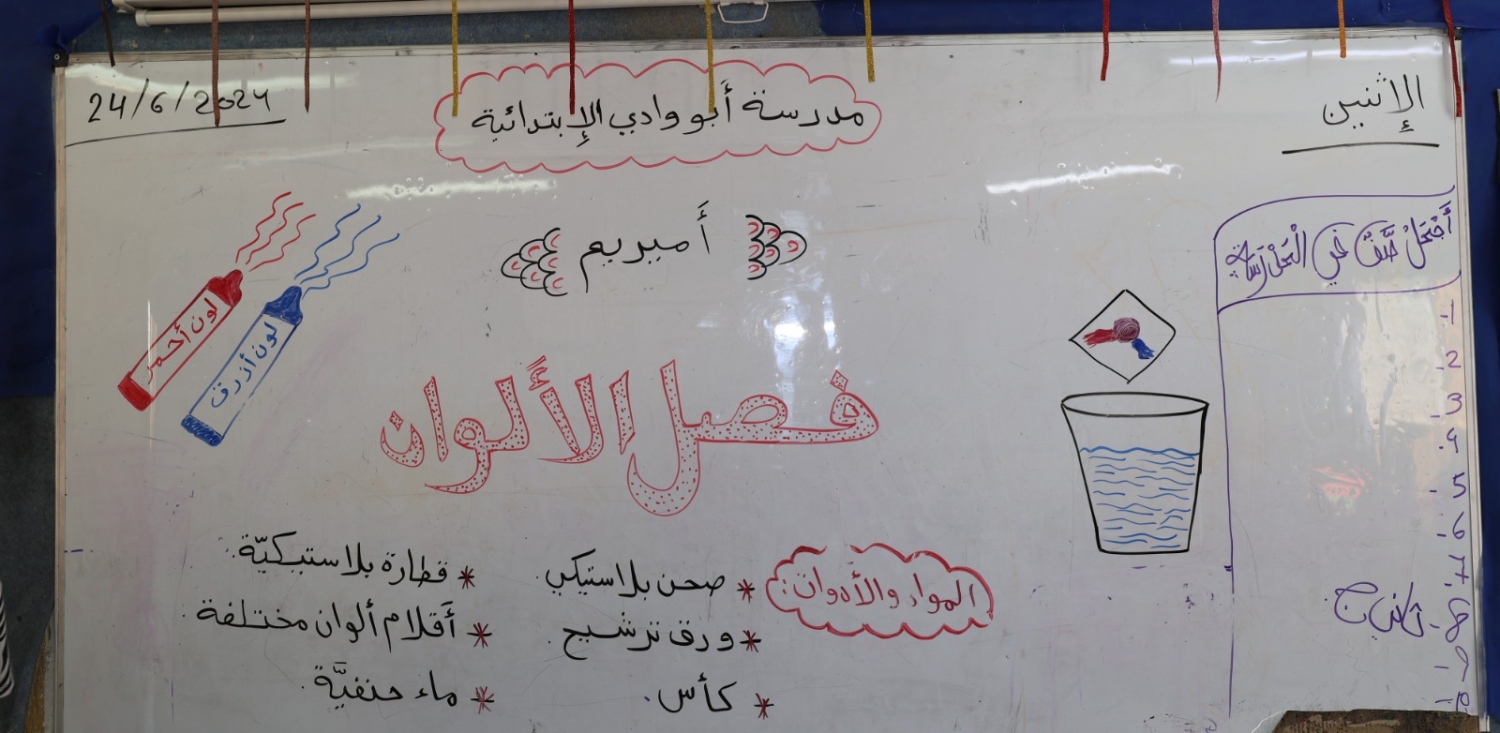 الإثنين
مدرسة أبو وادي الإبتدائية
24/6/2024
أميريم
لون أحمر
لون أزرق
فصل الألوان
المواد والأدوات:
* صحن بلاستيكي.
* ورق ترشيح.
* كأس.
* قطارة بلاستيكيّة.
* أقلام ألوان مختلفة.
* ماء حنفيَّة.
أَجْمَلُ صَفٍّ في الْمَدْرَسَةِ
1-
2-
3-
4-
5-
6-
7-
8-
9-
10-